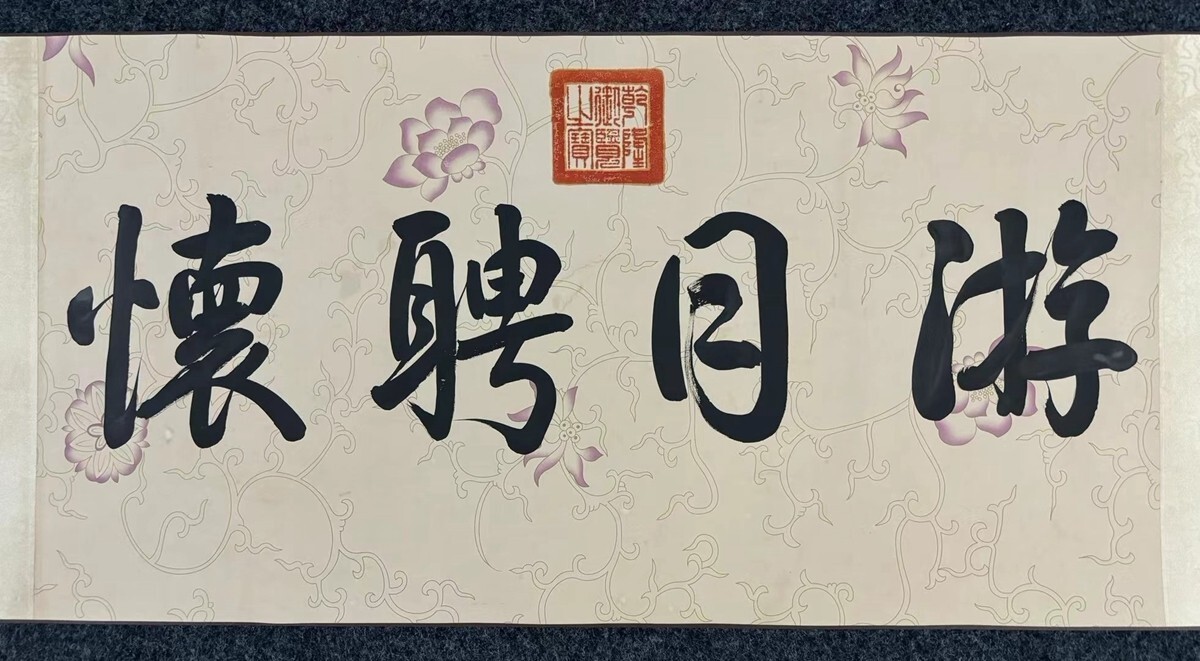 乾隆御覽之寶
游目聘懷